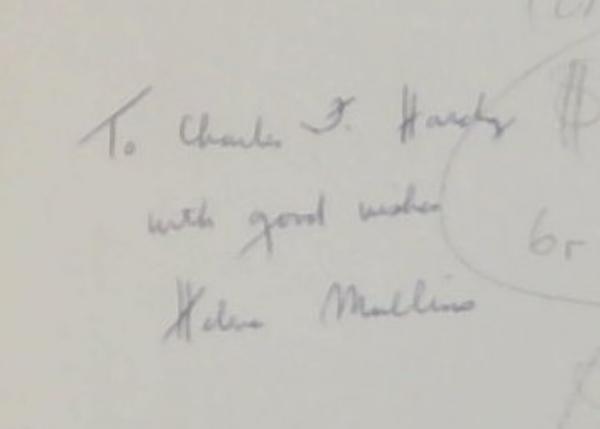 To Charles F. Hardy
with good wishes
Helene Mullins
6r